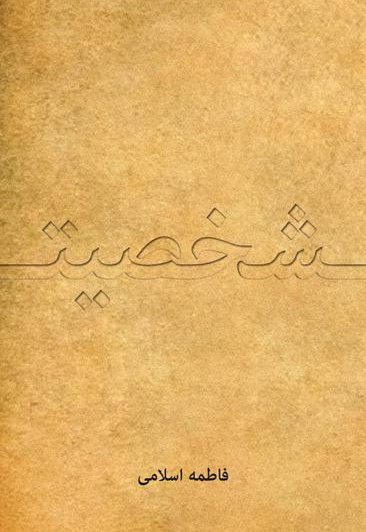 شخصیت
فاطمه اسلامی